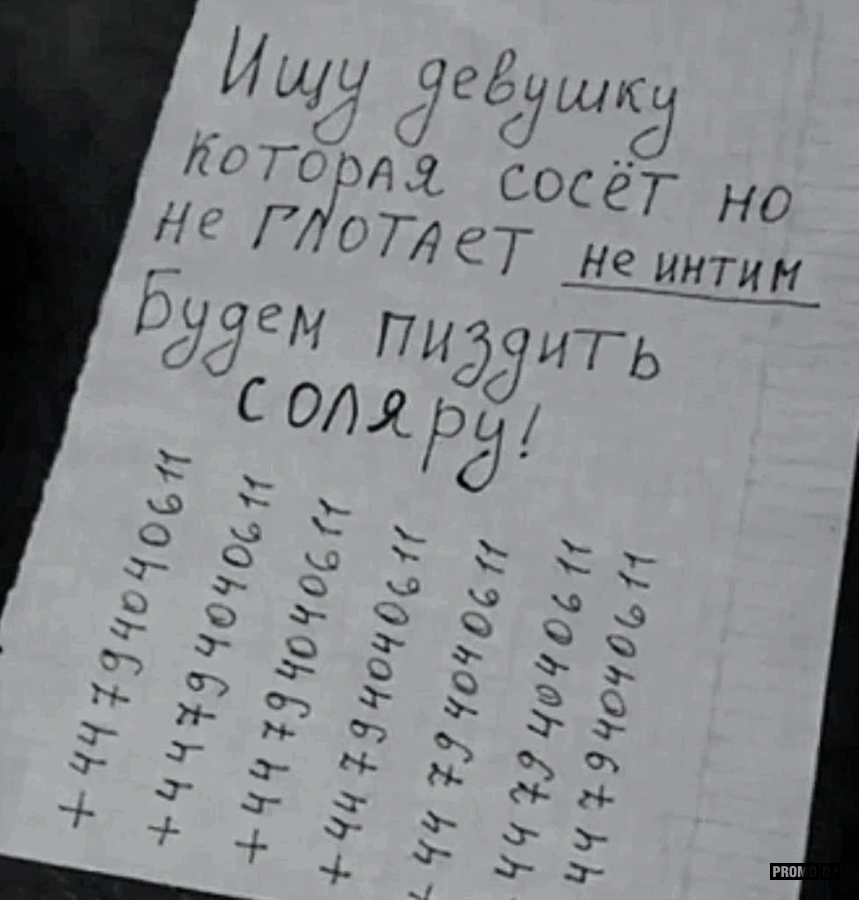 Ищу девушку
которая сосёт но
не глотает не интим
Будем пиздить
соляру!
+44794040611
+44794040611
+44794040611
+44794040611
+44794040611
44794040611
44794040611
PROMODJ